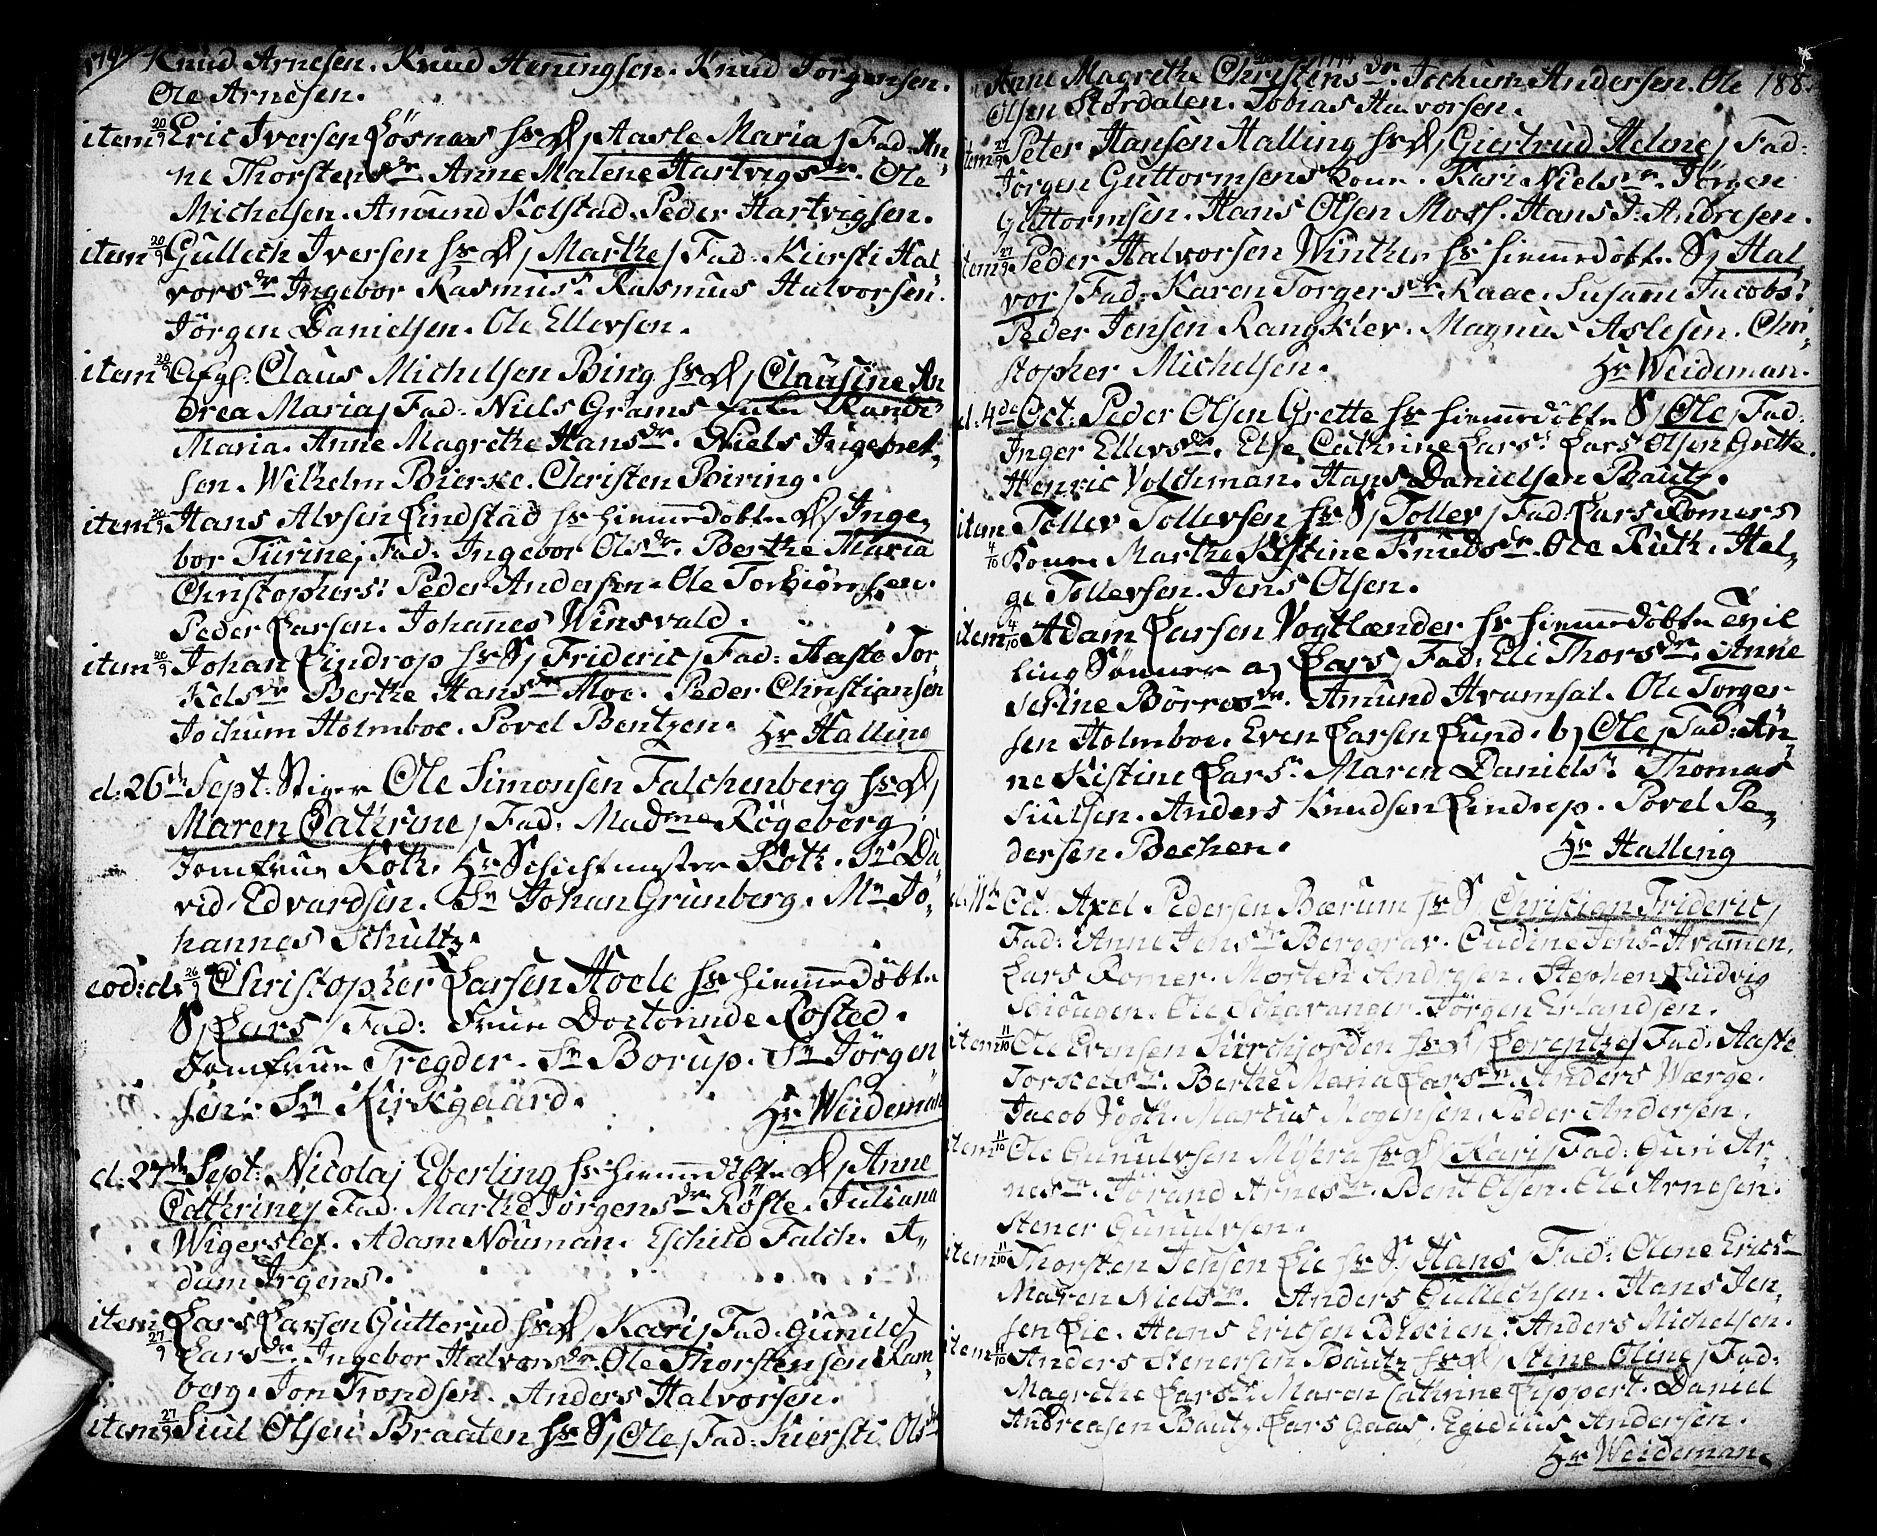 Knud Arnesen. Knud Henningsen. Knud Jörgensen.
Ole Arnesen.
item 20/9 Eric Iversen Lösnæs hs D/ Aasle Maria / Fad: An-
ne Thorstensdr. Anne Malene Hartvigsdr. Ole
Michelsen. Amund Kolstad. Peder Hartvigsen.
item 20/9 Gullech Iversen hs D/ Marthe / Fad: Kiersti Hal
vorsdr Ingebor Rasmus: Rasmus Halvorsen.
Jörgen Danielsen. Ole Ellevsen.
item 20/9 Claus Michelsen Bing hs D/ Clausine An
drea Maria / Fad: Niels Grams Randi
Maria. Anne Magrethe Hansdr. Niels Ingebret-
sen. Wilhelm Biersee. Christen Biring.
item 20/9 Hans Alvsen Lindstad hs hiemmedöbte D/ Inge-
bor Turine / Fad: Ingebor Olsdr. Berthe Maria
Christophers: Peder Andersen. Ole Torbiörnsen.
Peder Larsen. Johannes Winsvald.
item 20/9 Johan Lindrop hs S/ Frideric / Fad: Aaste Tor-
kelsdr Berthe Hansdr Moe. Peder Christiansen
Jochum Holmboe. Povel Bentzen. Hr Halling
d: 26de Sept: Stiger Ole Simonsen Falchenberg hs D/
Maren Cathrine / Fad: Madme Rögeberg
Jomfrue Roth. Hr Schichtmester Roth. Sr Da-
vid Edvardsen. Sr Johan Grünberg. Mr Jo-
hannes Schultz.
eod: d: 26/9 Christopher Larsen Hoele hs hiemmedöbte
S/ Lars / Fad: Frue Doctorinde Rosted.
Jomfrue Tregder. Sr Borup. Sr Jörgen-
sen. Sr Kirkgaard. Hr Weideman
d: 27de Sept: Nicolaj Eberling hs hiemmedöbte D/ Anne
Cathrine / Fad: Marthe Jörgensdr Röste. Juliana
Wigerslef. Adam Nouman. Eschild Falch. A-
dam Irgens.
item 27/9 Lars Larsen Gutterud hs D/ Kari / Fad: Gunild
Larsdr. Ingebor Halvorsdr. Ole Thorstensen Ram-
berg. Jon Trondsen. Anders Halvorsen.
item 27/9 Siul Olsen Braaten hs S/ Ole / Fad: Kiersti Ols
Anne Magrethe Christensdr. Jochum Andersen. Ole 188.
Olsen Stordalen. Tobias Halvorsen.
item 27/9 Peter Hansen Halling hs D/ Giertrud Helene / Fad:
Jörgen Guttormsens Kone. Kari Nielsdr. Jörgen
Guttormsen. Hans Olsen Moss. Hans J: Andresen.
item 27/9 Peder Halvorsen Winther hs hiemmedöbte S/ Hal
vor / Fad: Karen Torgersdr Kaae. Susanne Jacobs:
Peder Jensen Rangklev. Magnus Aslesen. Chri-
stopher Michelsen. Hr Weideman.
d: 4de Oct: Peder Olsen Grette hs hiemmedöbte S/ Ole / Fad:
Inger Ellevsdr. Else Cathrine Lars: Lars Olsen Grette.
Henric Volchman. Hans Danielsen Bautz.
item 4/10 Tollev Tollevsen hs S/ Tollev / Fad: Lars Romers
Kone. Marthe Kistine Knudsdr. Ole Ruth. Hel-
ge Tollevsen. Jens Olsen.
item 4/10 Adam Larsen Vogtlænder hs hiemmedöbte Tvil
ling Sönner a/ Lars / Fad: Eli Thorsdr. Anne
Serine Börresdr. Amund Hvamsal. Ole Torger
sen Holmboe. Even Larsen Lund. b/ Ole / Fad: An-
ne Kistine Larsdr. Maren Daniels: Thomas
Siulsen. Anders Knudsen Lindrop. Povel Pe-
dersen Bechen. Hr Halling
d: 11te Oct: Axel Pedersen Bærum hs S/ Christian Frideric /
Fad: Anne Jensdr Berggrav. Gudine Jens: Hvammen.
Lars Romer. Morten Andresen. Stephen Ludvig
Ole Schavanger. Jörgen Erlandsen.
item 11/10 Ole Evensen Kirchjorden hs D/ Lorentze / Fad: Aaste
Torstensdr. Berthe Maria Larsdr. Anders Wærge.
Jacob Vogth. Marcus Mogensen. Peder Andersen.
item 11/10 Ole Gunulvsen Myhra hs D/ Kari / Fad: Guri Ar-
nesdr. Törand Arnesdr. Bent Olsen. Ole Arnesen.
Stener Gunulvsen.
item 11/10 Thorsten Jensen Lie hs S/ Hans Fad: Oline Erics
Maren Nielsdr. Anders Gullichsen. Hans Jen-
sen Lie. Hans Ericsen. Anders Michelsen.
item 11/10 Anders Stenersen Bautz hs D/ Stine Oline / Fad:
Magrethe Larsdr. Maren Cathrine Lippert. Daniel
Andreasen Bautz. Lars Gaas. Egidius Andersen.
Hr Weideman.